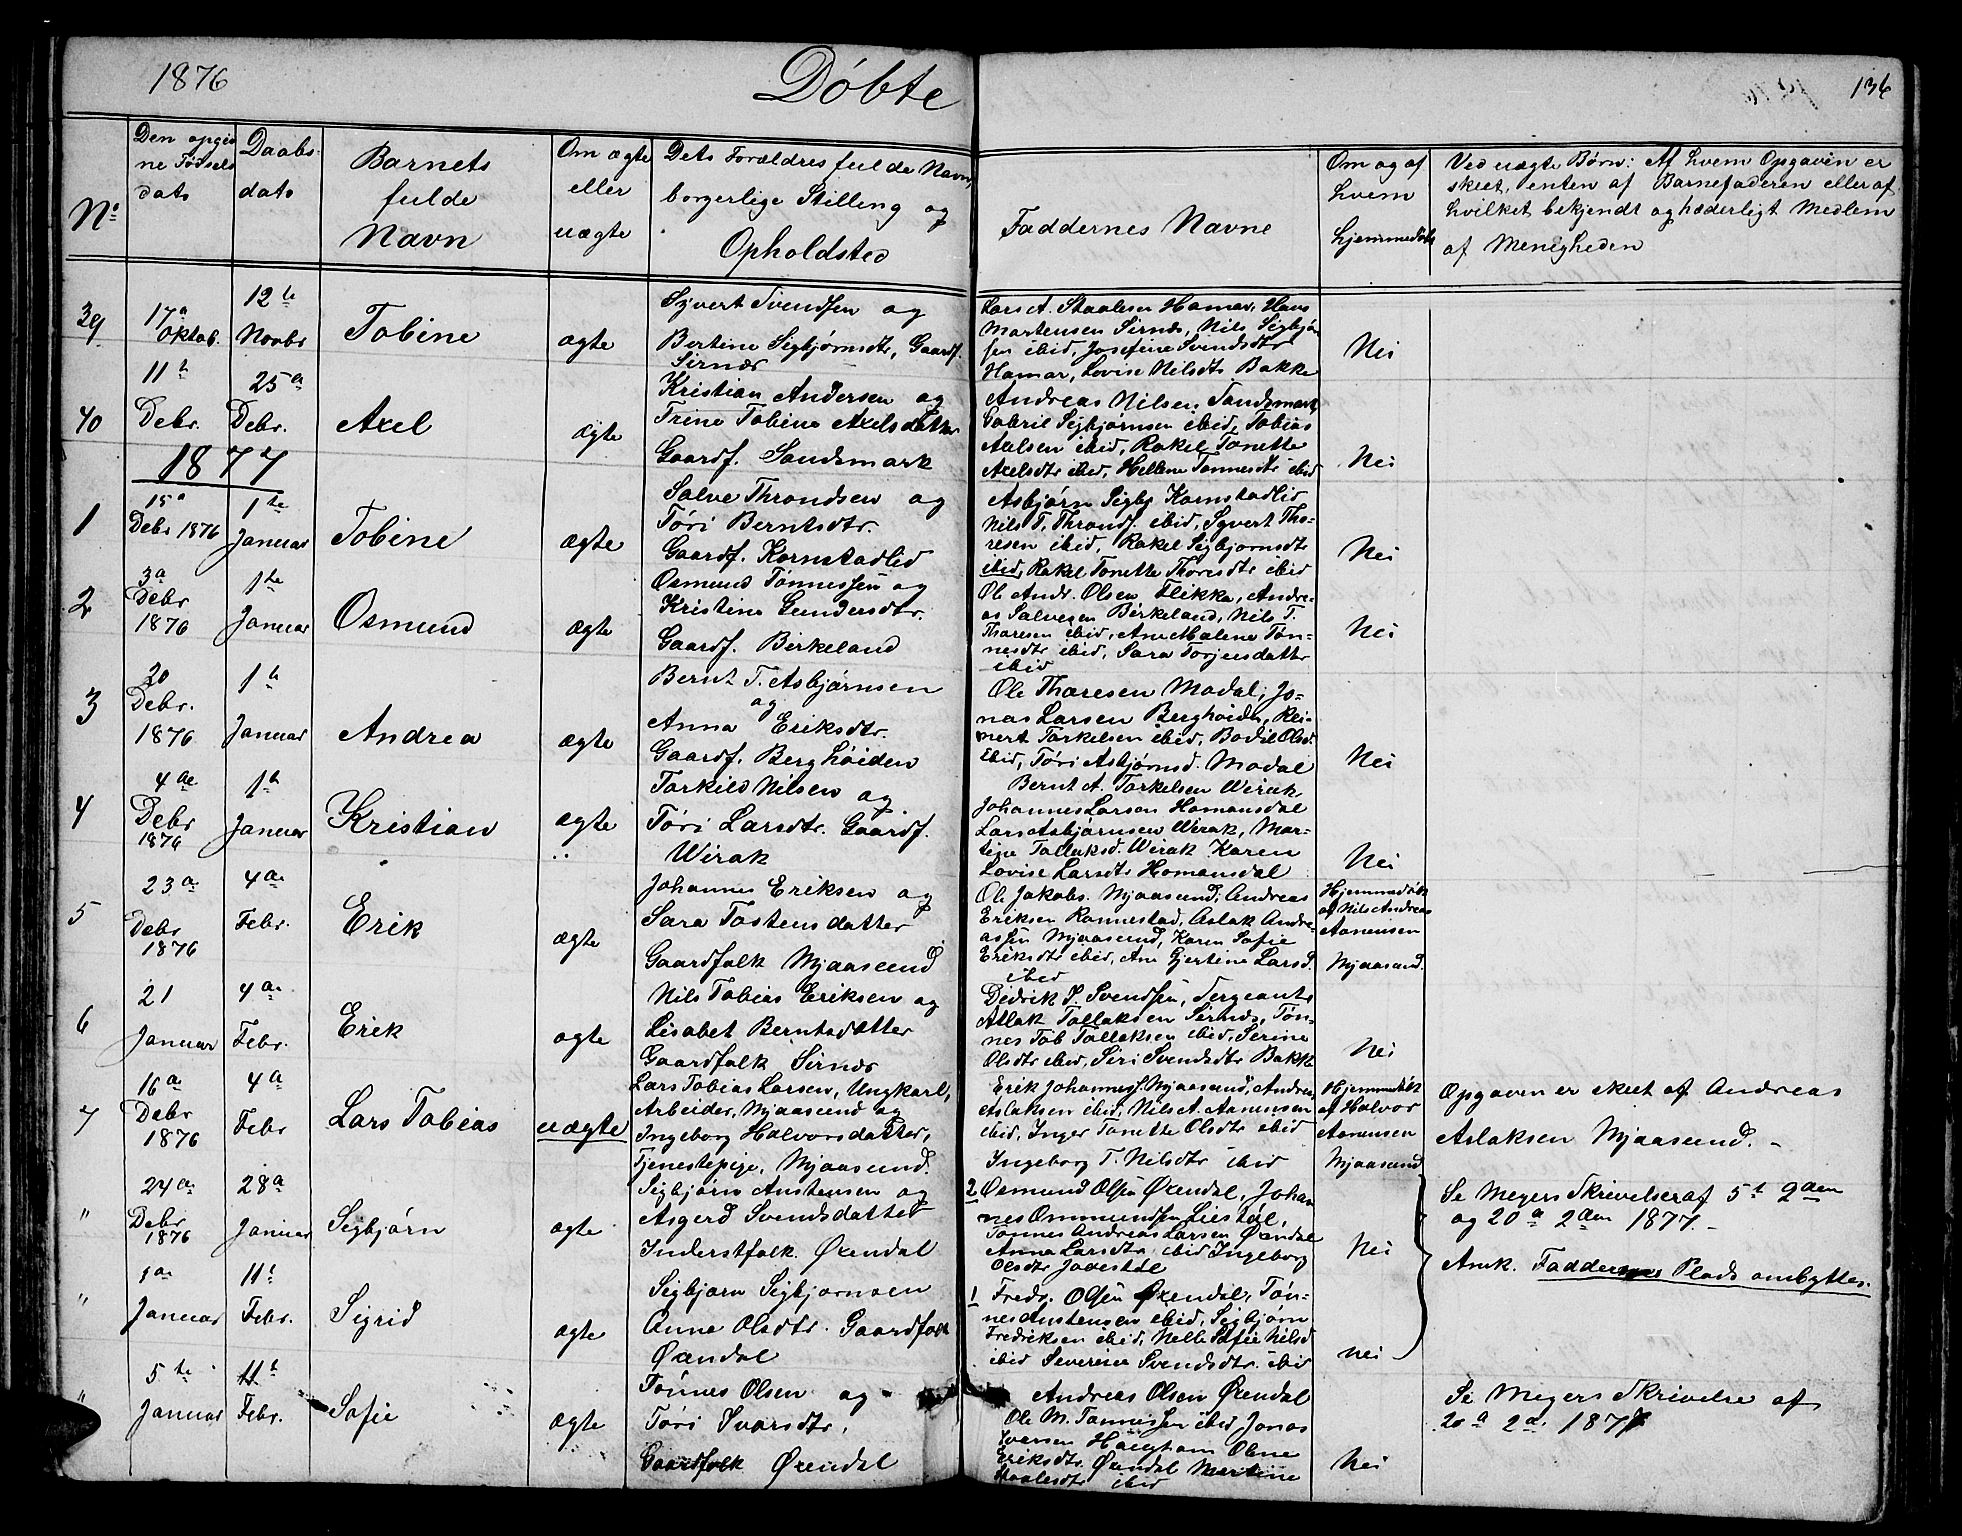 1876 Döbte 136
Nº
Den opgiv
ne Födsels
dato
Daabs-
dato
Barnets
fulde
Navn
Om ægte
eller
uægte
Dets Forældres fulde Navn,
borgerlige Stilling og
Opholdsted
Faddernes Navne
Om og af
hvem
hjemmedöbt
Ved uægte Börn: Af hvem Opgaven er
skeet, enten af Barnefaderen eller af
hvilket bekjendt og hæderligt Medlem
af Menigheden
39
17a
Oktob.
12te
Novbr
Tobine
ægte
Syvert Svendsen og
Bertine Sigbjørnsdtr, Gaardf.
Sirnæs
Lars A. Staalesen Hamar, Hans
Martensen Sirnæs, Nils Sigbjørn
sen ibid, Josefine Svendsdtr
Hamar, Lovise Nilsdtr Bakke
Nei
40
11te
Debr.
25a
Debr.
Axel
ægte
Kristian Andersen og
Trine Tobine Axelsdatter
Gaardf. Sandsmark
Andreas Nilsen Sandsmark
Gabriel Sigbjørnsen ibid, Tobias
Axelsen ibid, Rakel Tonette
Axelsdtr ibid, Hellene Tønnesdtr ibid
Nei
1877
1
15a
Debr 1876
1te
Januar
Tobine
ægte
Salve Throndsen og
Töri Berntsdtr.
Gaardf. Kornstadlid
Asbjørn Sigbj Kornstadlid
Nils T. Thronds. ibid, Syvert Tho-
resen ibid, Rakel Sigbjørnsdtr
ibid, Rakel Tonette Thoresdtr ibid
Nei
2
3a
Debr
1876
1te
Januar
Osmund
ægte
Osmund Tönnessen og
Kristine Gundersdtr.
Gaardf. Birkeland
Ole Andr. Olsen Flikke, Andre-
as Salvesen Birkeland, Nils T.
Tharesen ibid, Ane Malene Tön-
nesdtr ibid, Sara Torjusdatter
ibid
Nei
3
20
Debr.
1876
1te
Januar
Andrea
ægte
Bernt T. Asbjørnsen
og
Anna Eriksdtr.
Gaardf. Berghöiden
Ole Tharesen Modal, Jo-
nas Larsen Berghöiden, Rei-
nert Torkelsen ibid, Bodil Olsd.
ibid, Töri Asbjörnsd. Modal
Nei
4
4de
Debr
1876
1te
Januar
Kristian
ægte
Torkild Nilsen og
Töri Larsdtr. Gaardf.
Wirak
Bernt A. Torkelsen Wirak
Johannes Larsen Homansdal
Lars Asbjørnsen Wirak, Mar-
tine Tollaksd. Wirak Karen
Lovise Larsdtr Homansdal
Nei
5
23a
Debr
1876
4de
Febr.
Erik
ægte
Johannes Eriksen og
Sara Tostensdatter
Gaardfolk Mjaasund
Ole Jakobs. Mjaasund, Andreas
Eriksen Rannestad, Aslak Andre-
assen Mjaasund, Karen Sofie
Eriksdtr ibid, Ane Gjertine Larsd.
ibid
Hjemmedöbt
af Nils Andreas
Aanensen
Mjaasund.
6
21
Januar
4de
Febr.
Erik
ægte
Nils Tobias Eriksen og
Lisabet Berntsdatter
Gaardfolk Sirnæs
Dedrik S. Svendsen, Sergeant
Atlak Tollaksen Sirnæs, Tön-
nes Tob Tollaksen ibid, Serine
Olsdtr ibid, Siri Svendsdtr Bakke
Nei
7
16a
Debr
1876
4a
Febr
Lars Tobias
uægte
Lars Tobias Larsen, Ungkarl,
Arbeider, Mjaasund og
Ingeborg Halvorsdatter,
Tjenestepige, Mjaasund.
Erik Johanness. Mjaasund, Andreas
Aslaksen ibid, Nils A. Aanensen
ibid, Inger Tonette Olsdtr ibid
Ingeborg T. Nilsdtr ibid
Hjemmedöbt
af Halvor
Aanensen
Mjaasund
Opgaven er skeet af Andreas
Aslaksen Mjaasund.
"
24a
Debr
1876
28a
Januar
Sigbjörn
ægte
Sigbjörn Austensen og
Asgerd Svendsdatter
Inderstfolk. Øxendal
2 Osmund Olsen Øxendal, Johan
nes Ommundsen Liestöl,
Tönnes Andreas Larsen Øxendal
Anna Larsdtr ibid Ingeborg
Olsdtr
Nei
Se Meyers Skrivelser af 5t 2den
og 20a 2den 1877.
Anm. Faddernes Plads ombyttes.
"
1a
Januar
11t
Febr.
Sigrid
ægte
Sigbjørn Sigbjørnsen
Anne Olsdtr. Gaardfolk
Øxendal
1 Fredr. Olsen Øxendal, Tön-
nes Austensen ibid, Sigbjørn
Fredriksen ibid, Nelle Sofie Nilsd
ibid Severine Svendsdtr. ibid
Nei
"
5te
Januar
11t
Febr.
Sofie
ægte
Tönnes Olsen og
Töri Ivarsdtr.
Gaardfolk Øxendal
Andreas Olsen Øxendal
Ole M. Tønnessen ibid, Jonas
Iversen Haugham Oline
Eriksdtr. Øxendal Martine
Staalesdtr ibid
Nei
Se Meyers Skrivelse af
20a 2d. 1877